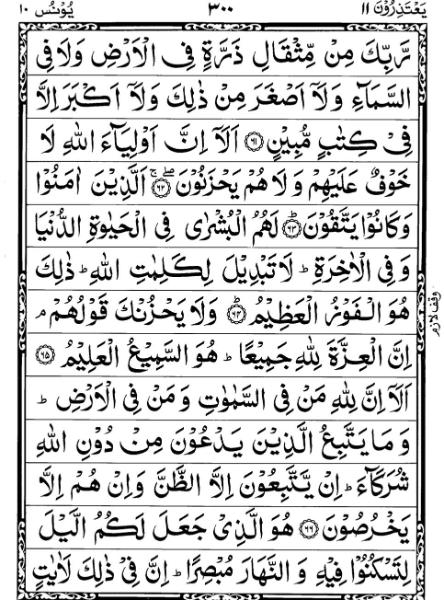 یَعْتَذِرُوْنَ ١١ ٣٠٠ یُوْنُسَ ١٠
رَّبِّكَ مِنْ مِّثْقَالِ ذَرَّةٍ فِی الْاَرْضِ وَلَا فِی
السَّمَآءِ وَلَاۤ اَصْغَرَ مِنْ ذٰلِكَ وَلَاۤ اَكْبَرَ اِلَّا
فِیْ كِتٰبٍ مُّبِیْنٍ ﴿٦١﴾ اَلَاۤ اِنَّ اَوْلِیَآءَ اللّٰهِ لَا
خَوْفٌ عَلَیْهِمْ وَلَا هُمْ یَحْزَنُوْنَ ﴿٦٢﴾ۖۚ اَلَّذِیْنَ اٰمَنُوْا
وَكَانُوْا یَتَّقُوْنَ ﴿٦٣﴾ؕ لَهُمُ الْبُشْرٰی فِی الْحَیٰوةِ الدُّنْیَا
وَفِی الْاٰخِرَةِ ؕ لَا تَبْدِیْلَ لِكَلِمٰتِ اللّٰهِ ؕ ذٰلِكَ
هُوَ الْفَوْزُ الْعَظِیْمُ ﴿٦٤﴾ؕ وَلَا یَحْزُنْكَ قَوْلُهُمْ ۘ
وقف لازم
اِنَّ الْعِزَّةَ لِلّٰهِ جَمِیْعًا ؕ هُوَ السَّمِیْعُ الْعَلِیْمُ ﴿٦٥﴾
اَلَاۤ اِنَّ لِلّٰهِ مَنْ فِی السَّمٰوٰتِ وَمَنْ فِی الْاَرْضِ ؕ
وَمَا یَتَّبِعُ الَّذِیْنَ یَدْعُوْنَ مِنْ دُوْنِ اللّٰهِ
شُرَكَآءَ ؕ اِنْ یَّتَّبِعُوْنَ اِلَّا الظَّنَّ وَاِنْ هُمْ اِلَّا
یَخْرُصُوْنَ ﴿٦٦﴾ هُوَ الَّذِیْ جَعَلَ لَكُمُ الَّیْلَ
لِتَسْكُنُوْا فِیْهِ وَالنَّهَارَ مُبْصِرًا ؕ اِنَّ فِیْ ذٰلِكَ لَاٰیٰتٍ